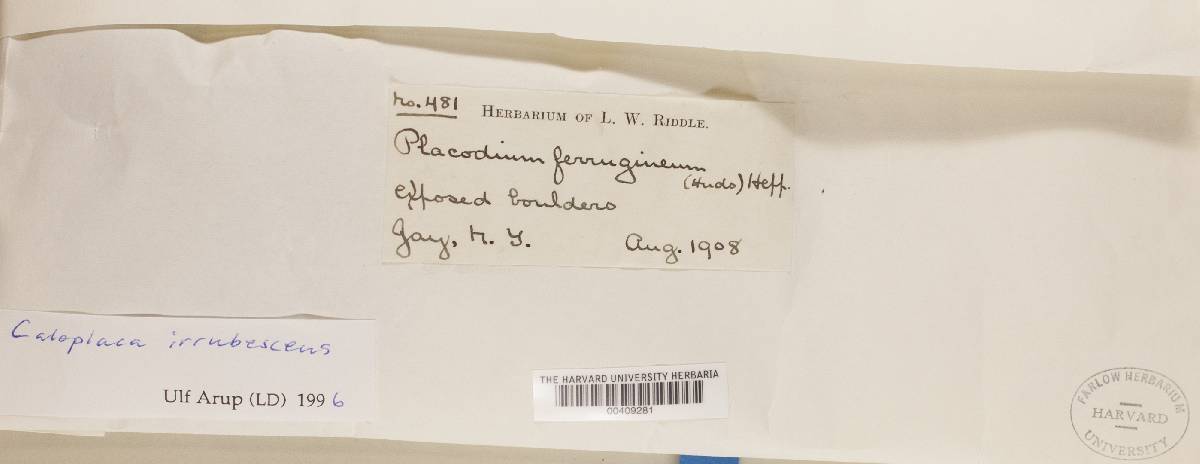 No. 481
HERBARIUM OF L. W. RIDDLE.
Placodium ferrugineum
(Huds) Hepp.
Exposed boulders
Jay, N. Y. Aug. 1908
Caloplaca irrubescens
Ulf Arup (LD) 1996
THE HARVARD UNIVERSITY HERBARIA
00409281
FARLOW HERBARIUM
HARVARD
UNIVERSITY